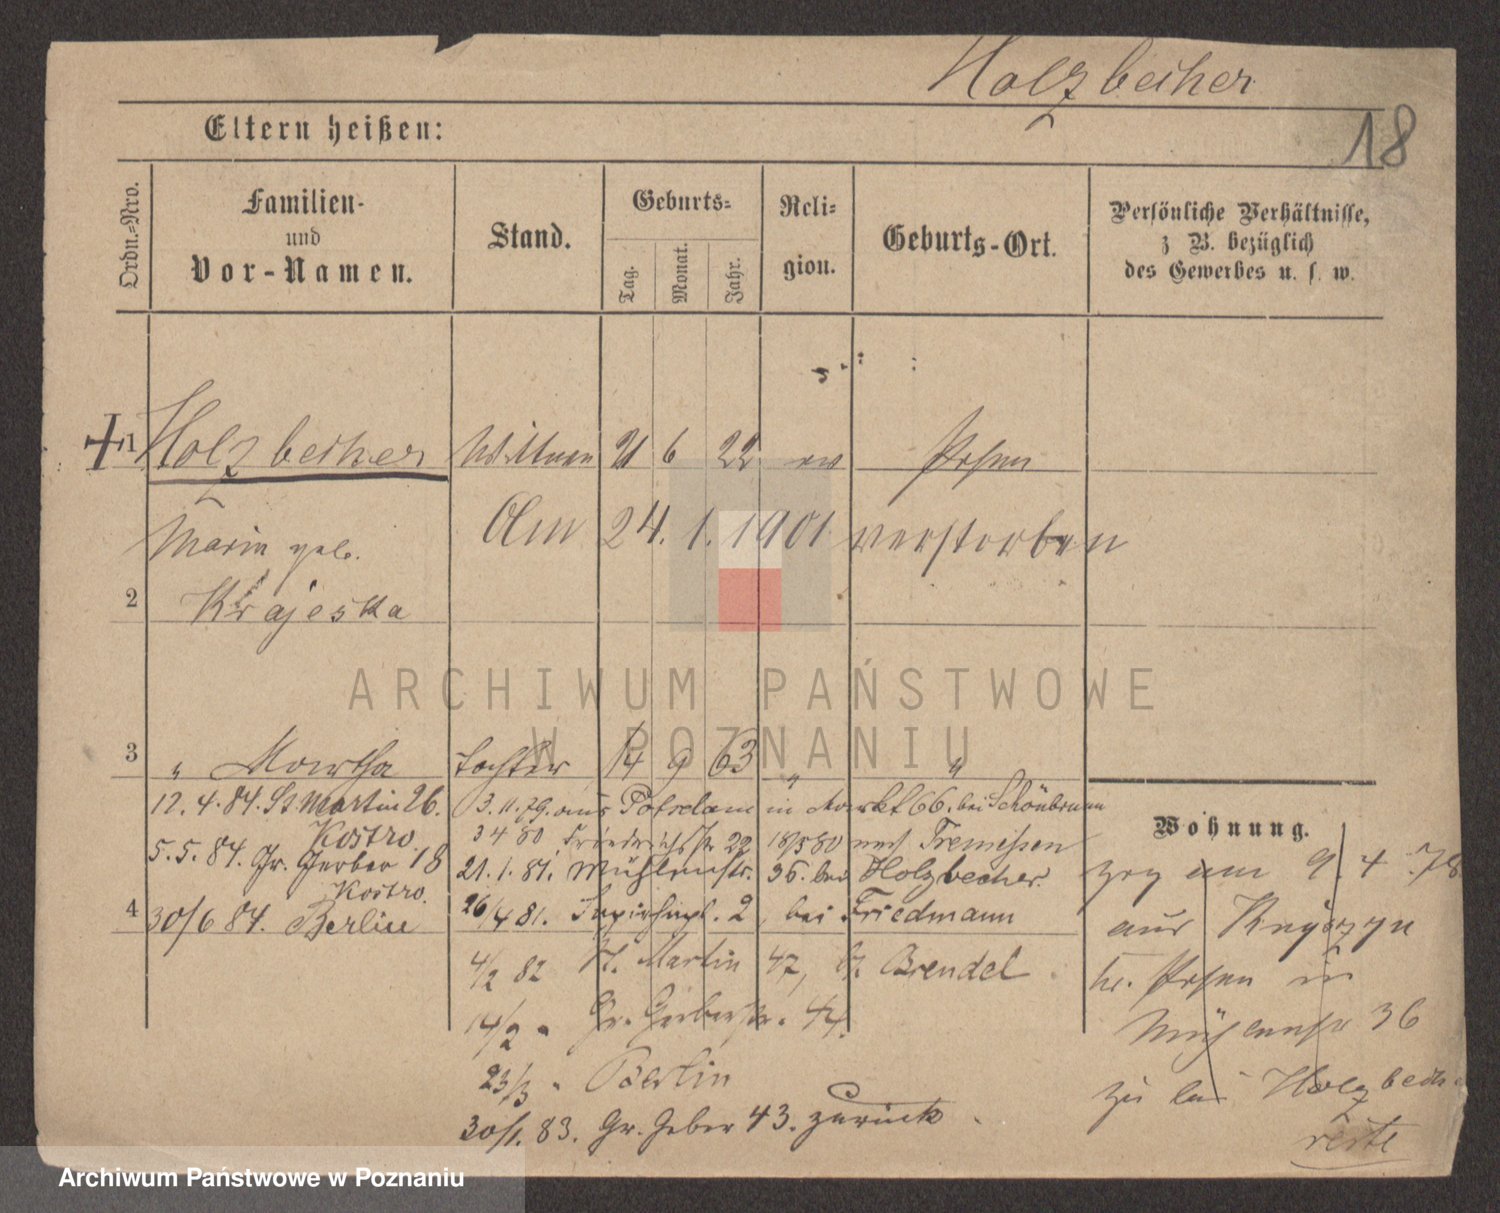 Holzbecher
18
Eltern heißen:
Ordn.=Nro.
Familien-
und
Vor-Namen.
Stand.
Geburts=
Tag.
Monat.
Jahr.
Reli=
gion.
Geburts-Ort.
Persönliche Verhältnisse,
z B. bezüglich
des Gewerbes u. s. w.
1 Holzbecher Wittwe 21 6 22 ev Posen
Am 24. 1. 1901 verstorben
Maria geb.
2 Krajeska
3 " Martha Tochter 14 9 63 " "
12. 4. 84. St Martin 26.
Kostro
5. 5. 84. Gr. Gerber 18
Kostro.
4 30/6 84. Berlin
3. 11. 79. aus Potsdam in Markt 66. bei Schönbrunn
3 4 80 Friedrichsstr 22 18/5 80 nach Tremessen
21. 1. 81. Mühlenstr. 36. bei Holzbecher.
26/4 81. 2, bei Friedmann
4/2 82 St. Martin 47, b. Brendel
14/2 " Gr. Gerberstr. 44.
23/3 " Berlin
30/1. 83. Gr. Geber 43. zurück
Wohnung.
zog am 9. 4. 78
aus
n. Posen in
Mühlenstr 36
zu bei Holzbecher
ARCHIWUM PAŃSTWOWE
W POZNANIU
Archiwum Państwowe w Poznaniu